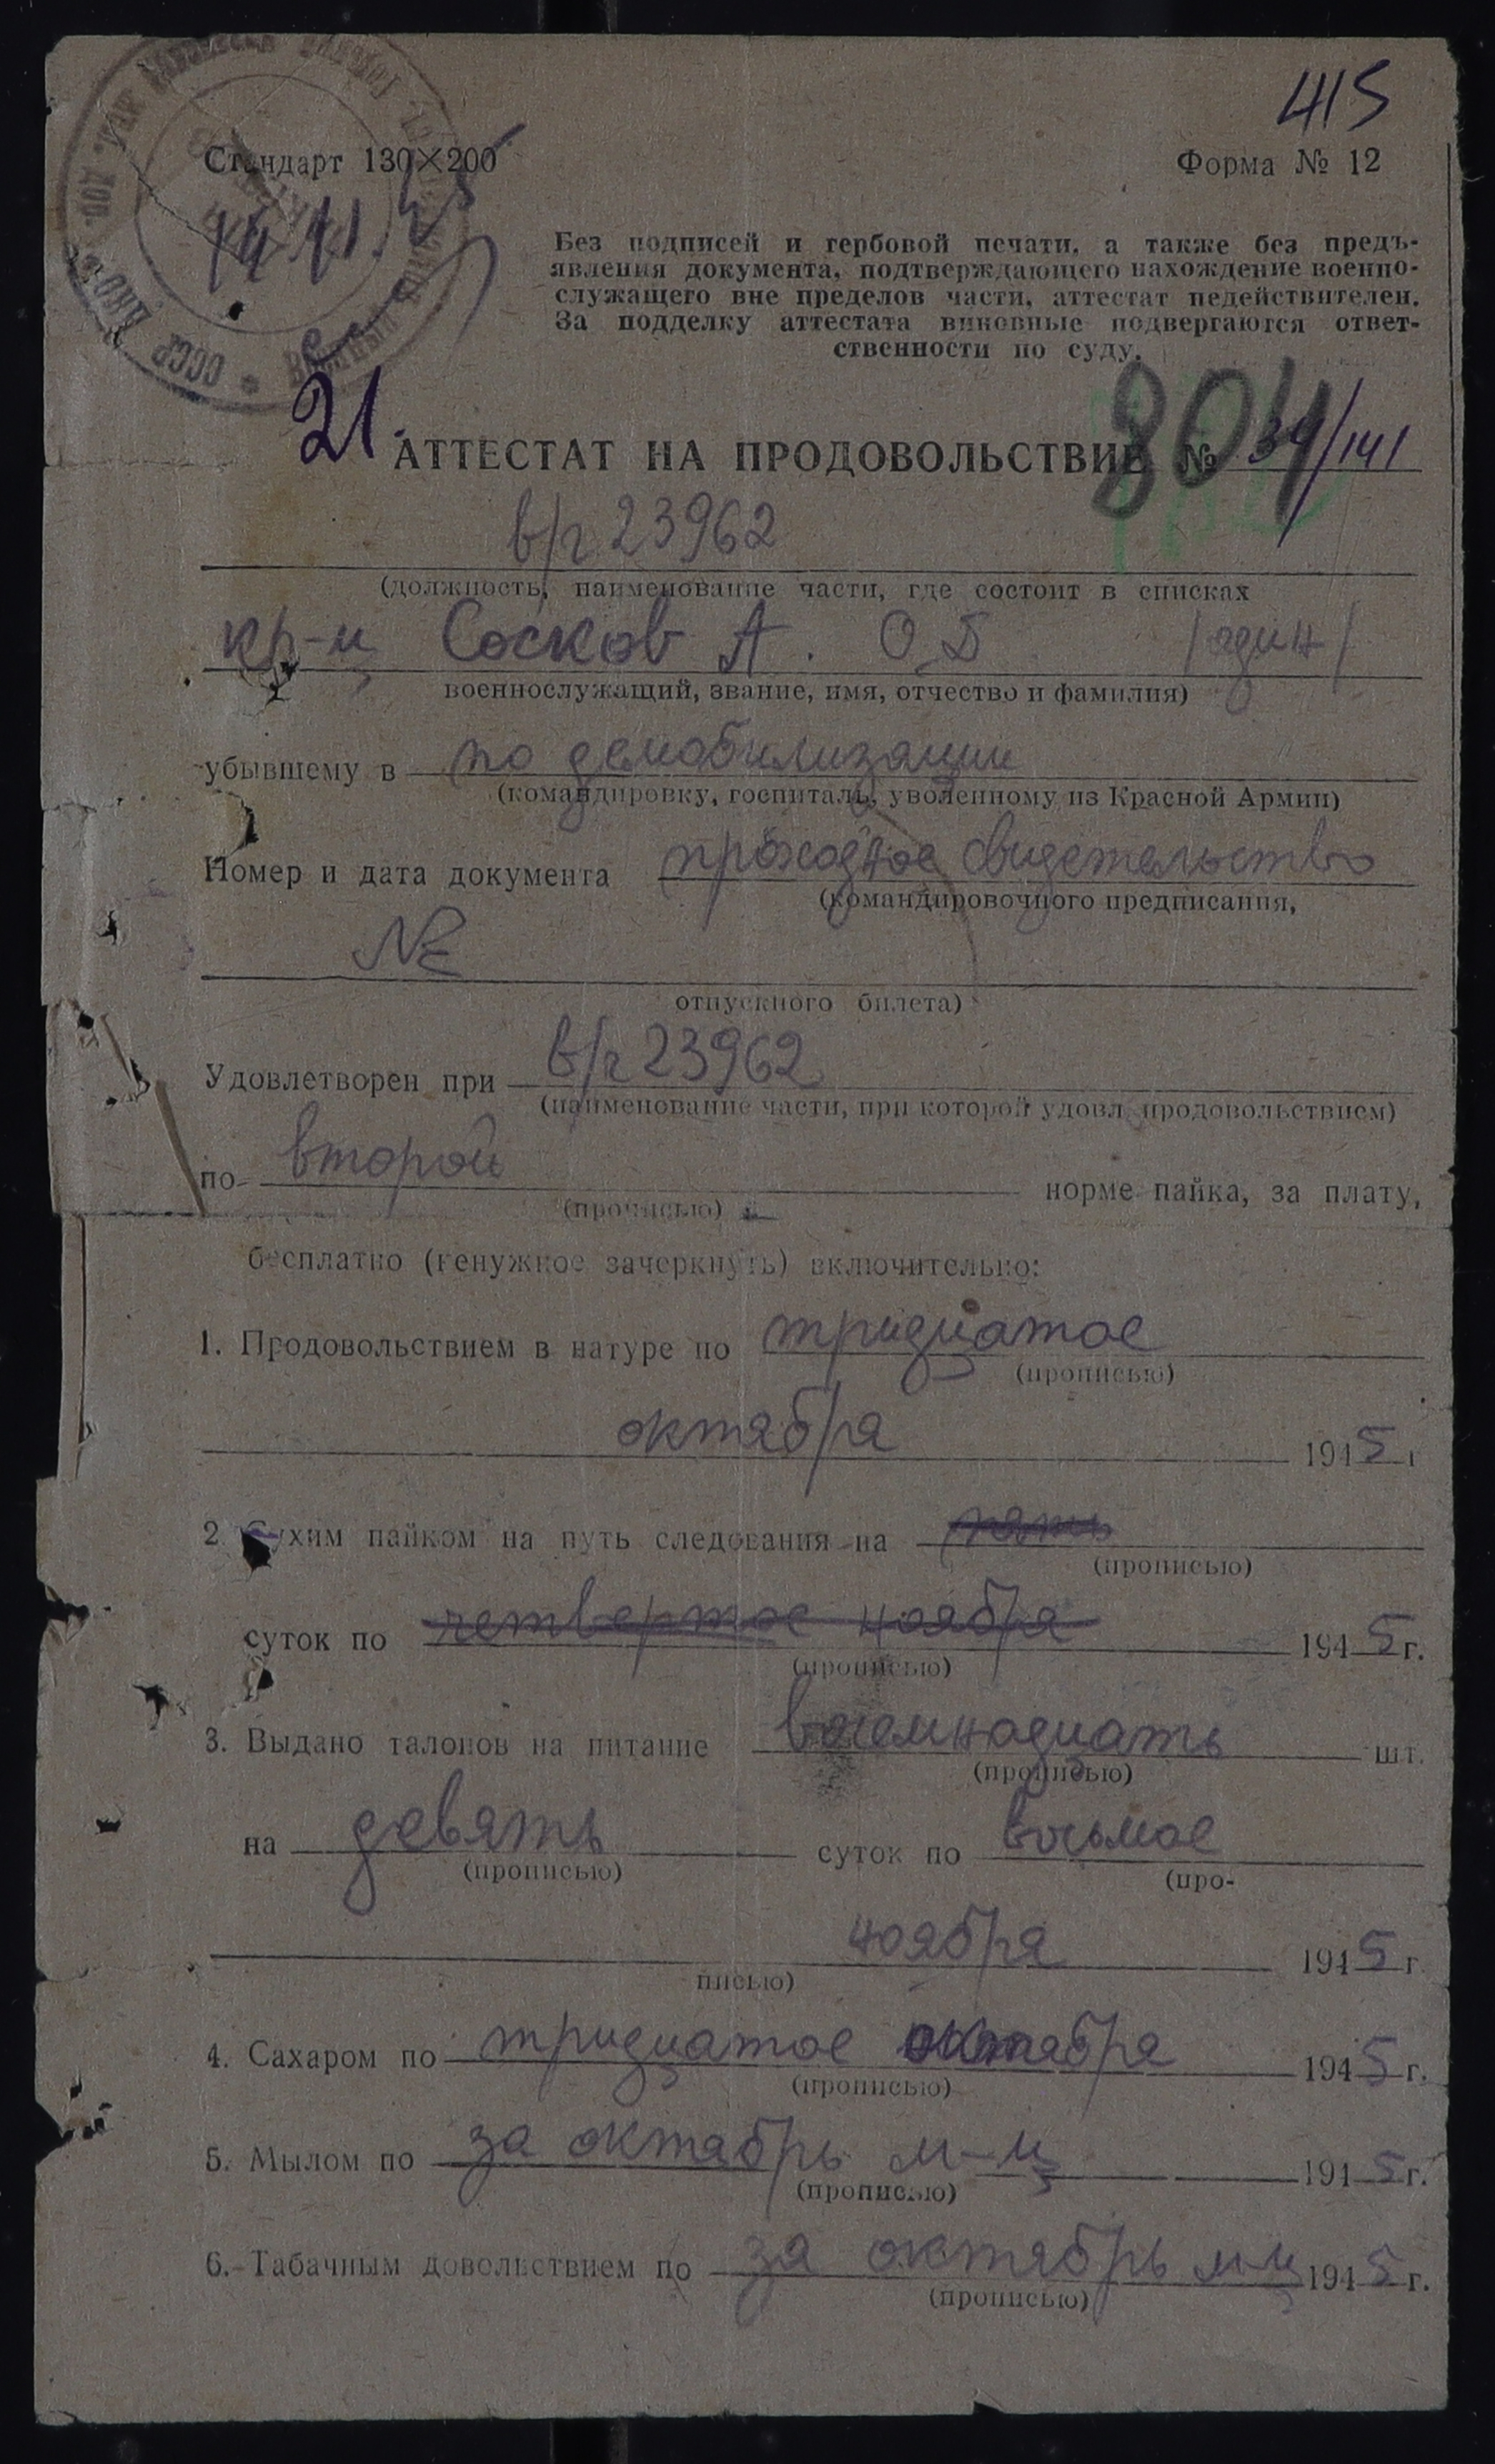 415
Стандарт 130×200
Форма № 12
Без подписей и гербовой печати, а также без предъ-
явления документа, подтверждающего нахождение военно-
служащего вне пределов части, аттестат недействителен.
За подделку аттестата виновные подвергаются ответ-
ственности по суду.
21.
804
АТТЕСТАТ НА ПРОДОВОЛЬСТВИЕ № 34/141
в/ч 23962
(должность, наименование части, где состоит в списках
кр-ц Сосков А. О.Б /один/
военнослужащий, звание, имя, отчество и фамилия)
убывшему в по демобилизации
(командировку, госпиталь, уволенному из Красной Армии)
Номер и дата документа проходное свидетельство
(командировочного предписания,
№
отпускного билета)
Удовлетворен при в/ч 23962
(наименование части, при которой удовл. продовольствием)
по второй норме пайка, за плату,
(прописью)
бесплатно (ненужное зачеркнуть) включительно:
1. Продовольствием в натуре по тридцатое
(прописью)
октября 1945 г
2. Сухим пайком на путь следования на пять
(прописью)
суток по четвертое ноября 1945 г.
(прописью)
3. Выдано талонов на питание восемнадцать шт.
(прописью)
на девять суток по восьмое
(прописью) (про-
ноября 1945 г.
писью)
4. Сахаром по тридцатое октября 1945 г.
(прописью)
5. Мылом по за октябрь м-ц 1945 г.
(прописью)
6. Табачным довольствием по за октябрь м-ц 1945 г.
(прописью)